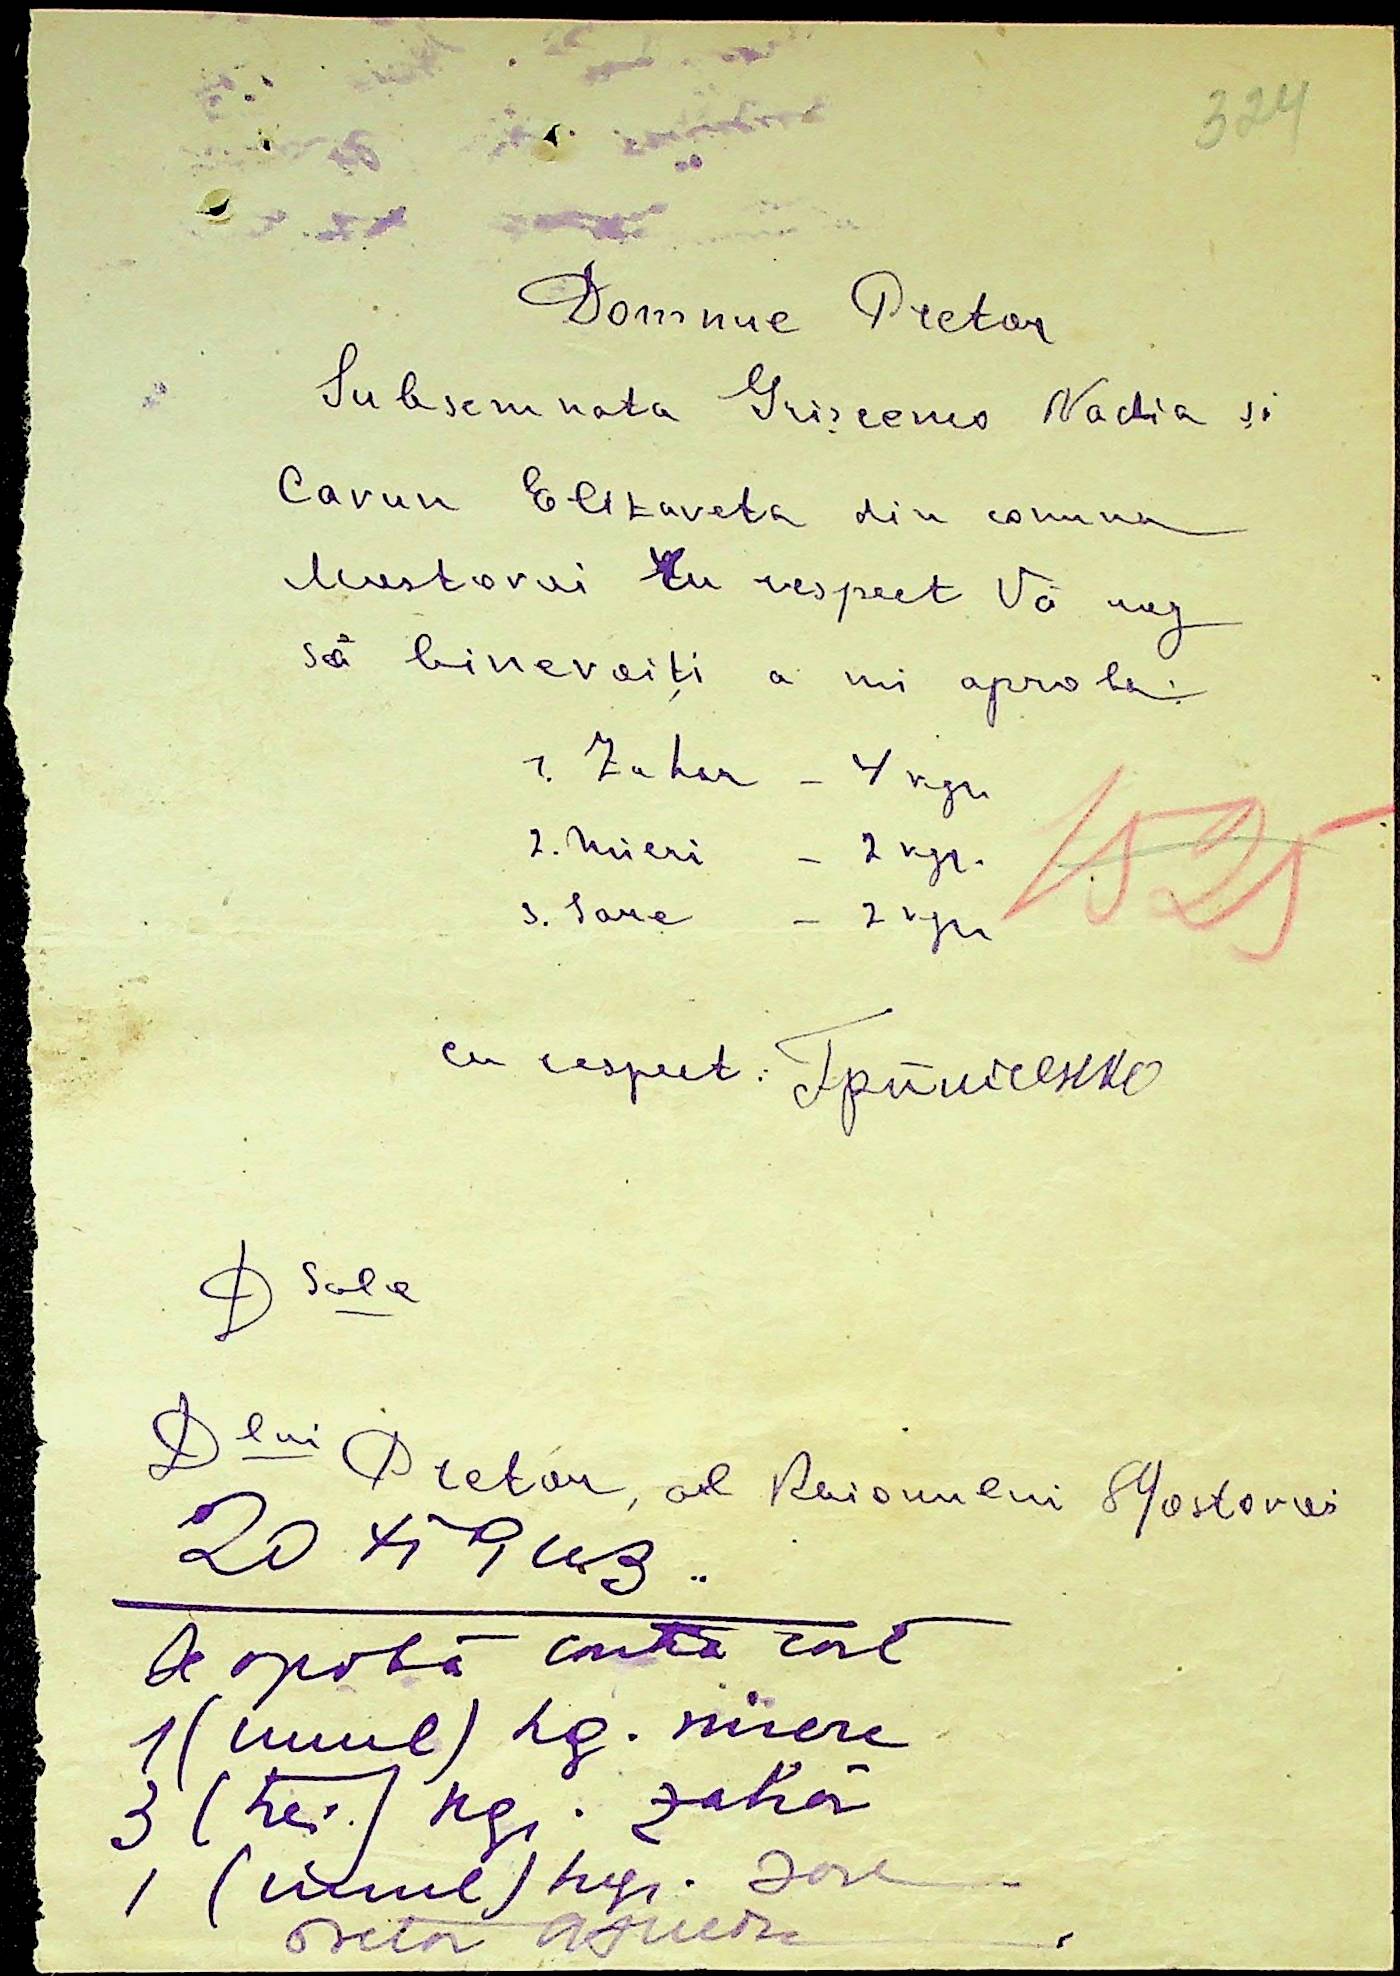 324
Domnule Pretor
Subsemnata Grișcenco Nadia și
Cavun Elizaveta din comuna
Mostovoi cu respect Vă rog
să binevoiți a mi aproba:
1. Zahar - 4 kgr.
2. Mieri - 2 kgr.
3. Sare - 2 kgr.
1525
cu respect:
D sale
D lui Pretor, al Raionului Mostovoi
20 XI 943.
Se aprobă contra cost
1 (unul) kg. miere
3 (trei) kgr. zahăr
1 (unul) kgr. sare
Pretor